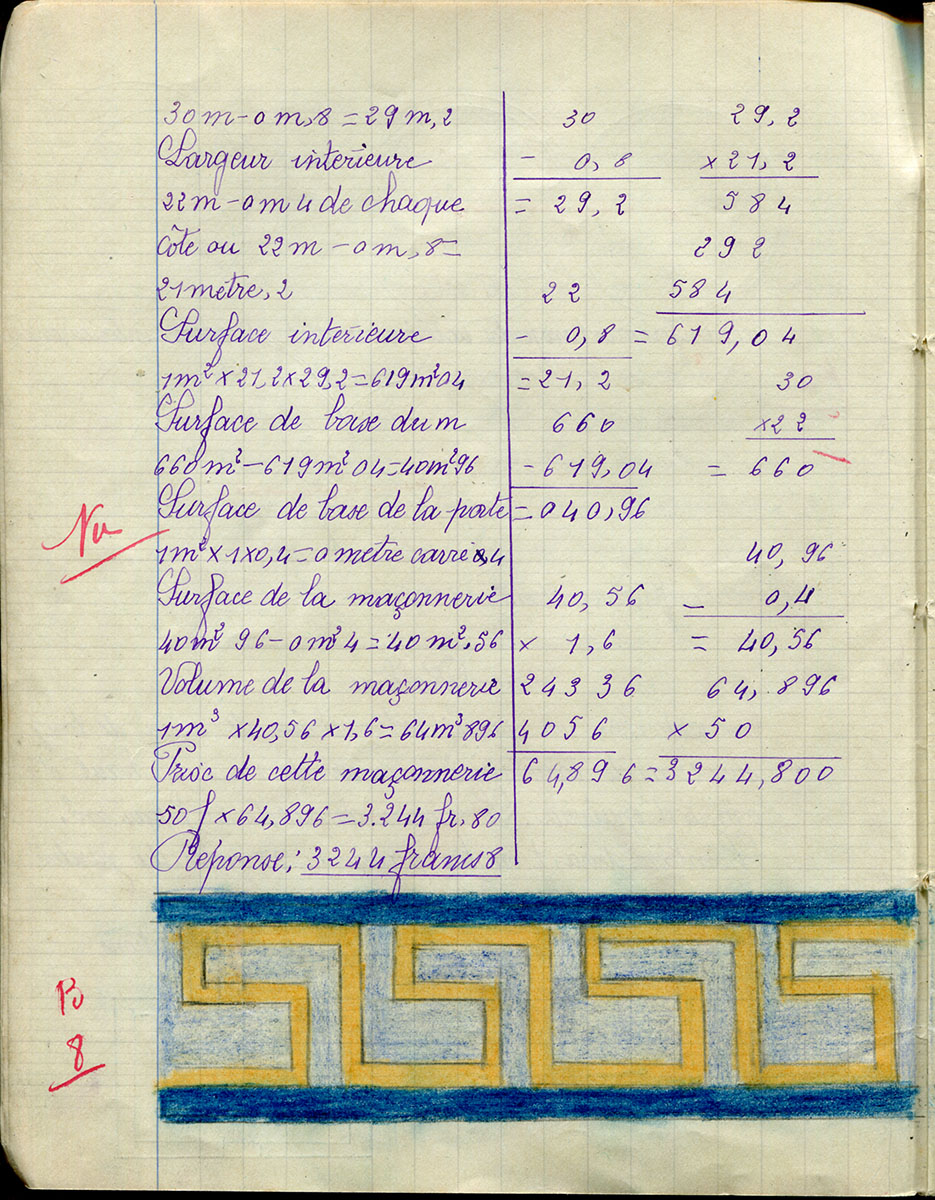 30m-0m,8=29m,2
Largeur intérieure
22m-0m4 de chaque
côte ou 22m-0m,8=
21metre,2
Surface intérieure
1m²×21,2×29,2=619m²04
Surface de base du m
660m²-619m²04=40m²96
Surface de base de la porte
1m²×1×0,4=0 metre carre 0,4
Surface de la maçonnerie
40m² 96-0m²4=40m²,56
Volume de la maçonnerie
1m³×40,56×1,6=64m³896
Prix de cette maçonnerie
50f×64,896=3.244 fr,80
Réponse: 3244 francs8
30
- 0,8
= 29,2
22
- 0,8
=21,2
660
-619,04
=040,96
40,56
× 1,6
24336
4056
64,896
29,2
×21,2
584
292
584
=619,04
30
×22
= 660
40,96
- 0,4
= 40,56
64,896
×50
=3244,800
Nu
B
8